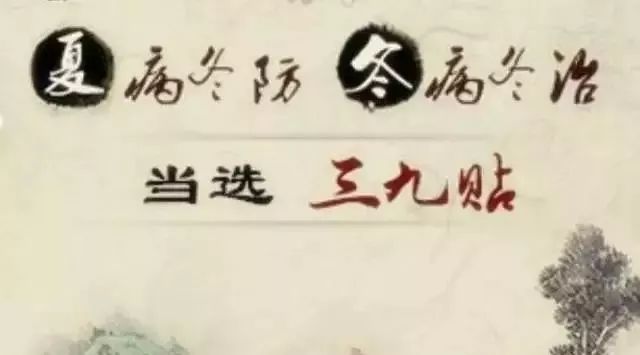 夏病冬防 冬病冬治
当选 三九贴